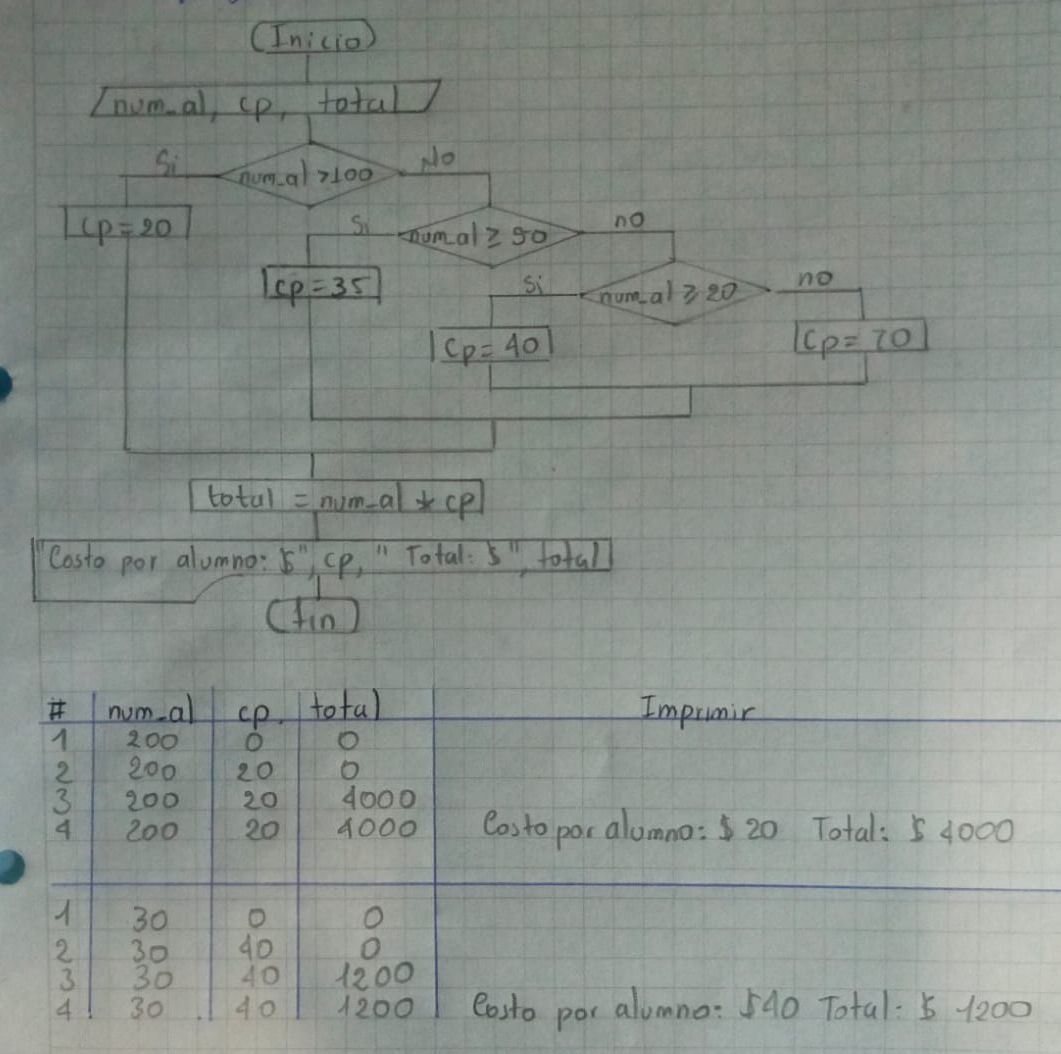 (Inicio)
num_al, cp, total
Si num_al >100 No
cp=20
Si num_al ≥ 50 no
cp=35
Si num_al ≥ 20 no
cp= 40
cp= 70
total = num_al * cp
"Costo por alumno: $", cp, " Total: $", total
(fin)
# num_al cp. total Imprimir
1 200 0 0
2 200 20 0
3 200 20 4000
4 200 20 4000 Costo por alumno: $ 20 Total: $ 4000
1 30 0 0
2 30 40 0
3 30 40 1200
4 30 40 1200 Costo por alumno: $40 Total: $ 1200